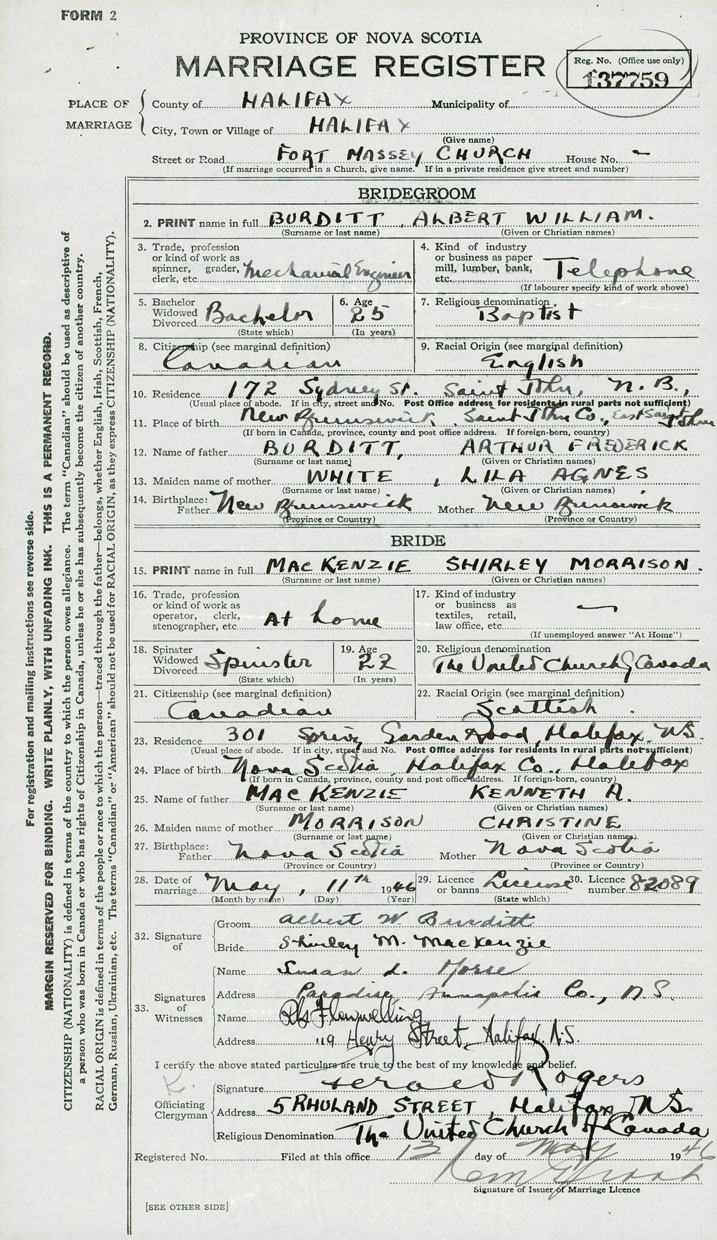 FORM 2
PROVINCE OF NOVA SCOTIA
MARRIAGE REGISTER
Reg. No. (Office use only)
137759
PLACE OF MARRIAGE
County of HALIFAX Municipality of
City, Town or Village of HALIFAX
(Give name)
Street or Road FORT MASSEY CHURCH House No. –
(If marriage occurred in a Church, give name. If in a private residence give street and number)
BRIDEGROOM
2. PRINT name in full BURDITT, ALBERT WILLIAM.
(Surname or last name) (Given or Christian names)
3. Trade, profession or kind of work as spinner, grader, clerk, etc. Mechanical Engineer
4. Kind of industry or business as paper mill, lumber, bank, etc. Telephone
(If labourer specify kind of work above)
5. Bachelor Widowed Divorced Bachelor
(State which)
6. Age 25
(In years)
7. Religious denomination
Baptist
8. Citizenship (see marginal definition)
Canadian
9. Racial Origin (see marginal definition)
English
10. Residence 172 Sydney St. Saint John, N.B.,
(Usual place of abode. If in city, street and No. Post Office address for residents in rural parts not sufficient)
11. Place of birth New Brunswick, Saint John Co., East Saint John
(If born in Canada, province, county and post office address. If foreign-born, country)
12. Name of father BURDITT, ARTHUR FREDERICK
(Surname or last name) (Given or Christian names)
13. Maiden name of mother WHITE, LILA AGNES
(Surname or last name) (Given or Christian names)
14. Birthplace: Father New Brunswick Mother New Brunswick
(Province or Country) (Province or Country)
BRIDE
15. PRINT name in full MACKENZIE SHIRLEY MORRISON.
(Surname or last name) (Given or Christian names)
16. Trade, profession or kind of work as operator, clerk, stenographer, etc. At home
17. Kind of industry or business as textiles, retail, law office, etc. –
(If unemployed answer "At Home")
18. Spinster Widowed Divorced Spinster
(State which)
19. Age 22
(In years)
20. Religious denomination
The United Church of Canada
21. Citizenship (see marginal definition)
Canadian
22. Racial Origin (see marginal definition)
Scottish
23. Residence 301 Spring Garden Road, Halifax, N.S.
(Usual place of abode. If in city, street and No. Post Office address for residents in rural parts not sufficient)
24. Place of birth Nova Scotia, Halifax Co., Halifax
(If born in Canada, province, county and post office address. If foreign-born, country)
25. Name of father MACKENZIE KENNETH A.
(Surname or last name) (Given or Christian names)
26. Maiden name of mother MORRISON CHRISTINE
(Surname or last name) (Given or Christian names)
27. Birthplace: Father Nova Scotia Mother Nova Scotia
(Province or Country) (Province or Country)
28. Date of marriage May, 11th 1946
(Month by name) (Day) (Year)
29. Licence or banns License
(State which)
30. Licence number 82089
32. Signature of
Groom Albert W Burditt
Bride Shirley M. Mackenzie
33. Signatures of Witnesses
Name Susan L. Morse
Address Paradise, Annapolis Co., N.S.
Name Flewwelling
Address 119 Henry Street, Halifax N.S.
I certify the above stated particulars are true to the best of my knowledge and belief.
Officiating Clergyman
Signature Gerald Rogers
Address 5 RHULAND STREET, Halifax, N.S.
Religious Denomination The United Church of Canada
Registered No. Filed at this office 13 day of May 1946
Signature of Issuer of Marriage Licence
[SEE OTHER SIDE]
For registration and mailing instructions see reverse side.
MARGIN RESERVED FOR BINDING. WRITE PLAINLY, WITH UNFADING INK. THIS IS A PERMANENT RECORD.
CITIZENSHIP (NATIONALITY) is defined in terms of the country to which the person owes allegiance. The term "Canadian" should be used as descriptive of
a person who was born in Canada or who has rights of Citizenship in Canada, unless he or she has subsequently become the citizen of another country.
RACIAL ORIGIN is defined in terms of the people or race to which the person—traced through the father—belongs, whether English, Irish, Scottish, French,
German, Russian, Ukrainian, etc. The terms "Canadian" or "American" should not be used for RACIAL ORIGIN, as they express CITIZENSHIP (NATIONALITY).